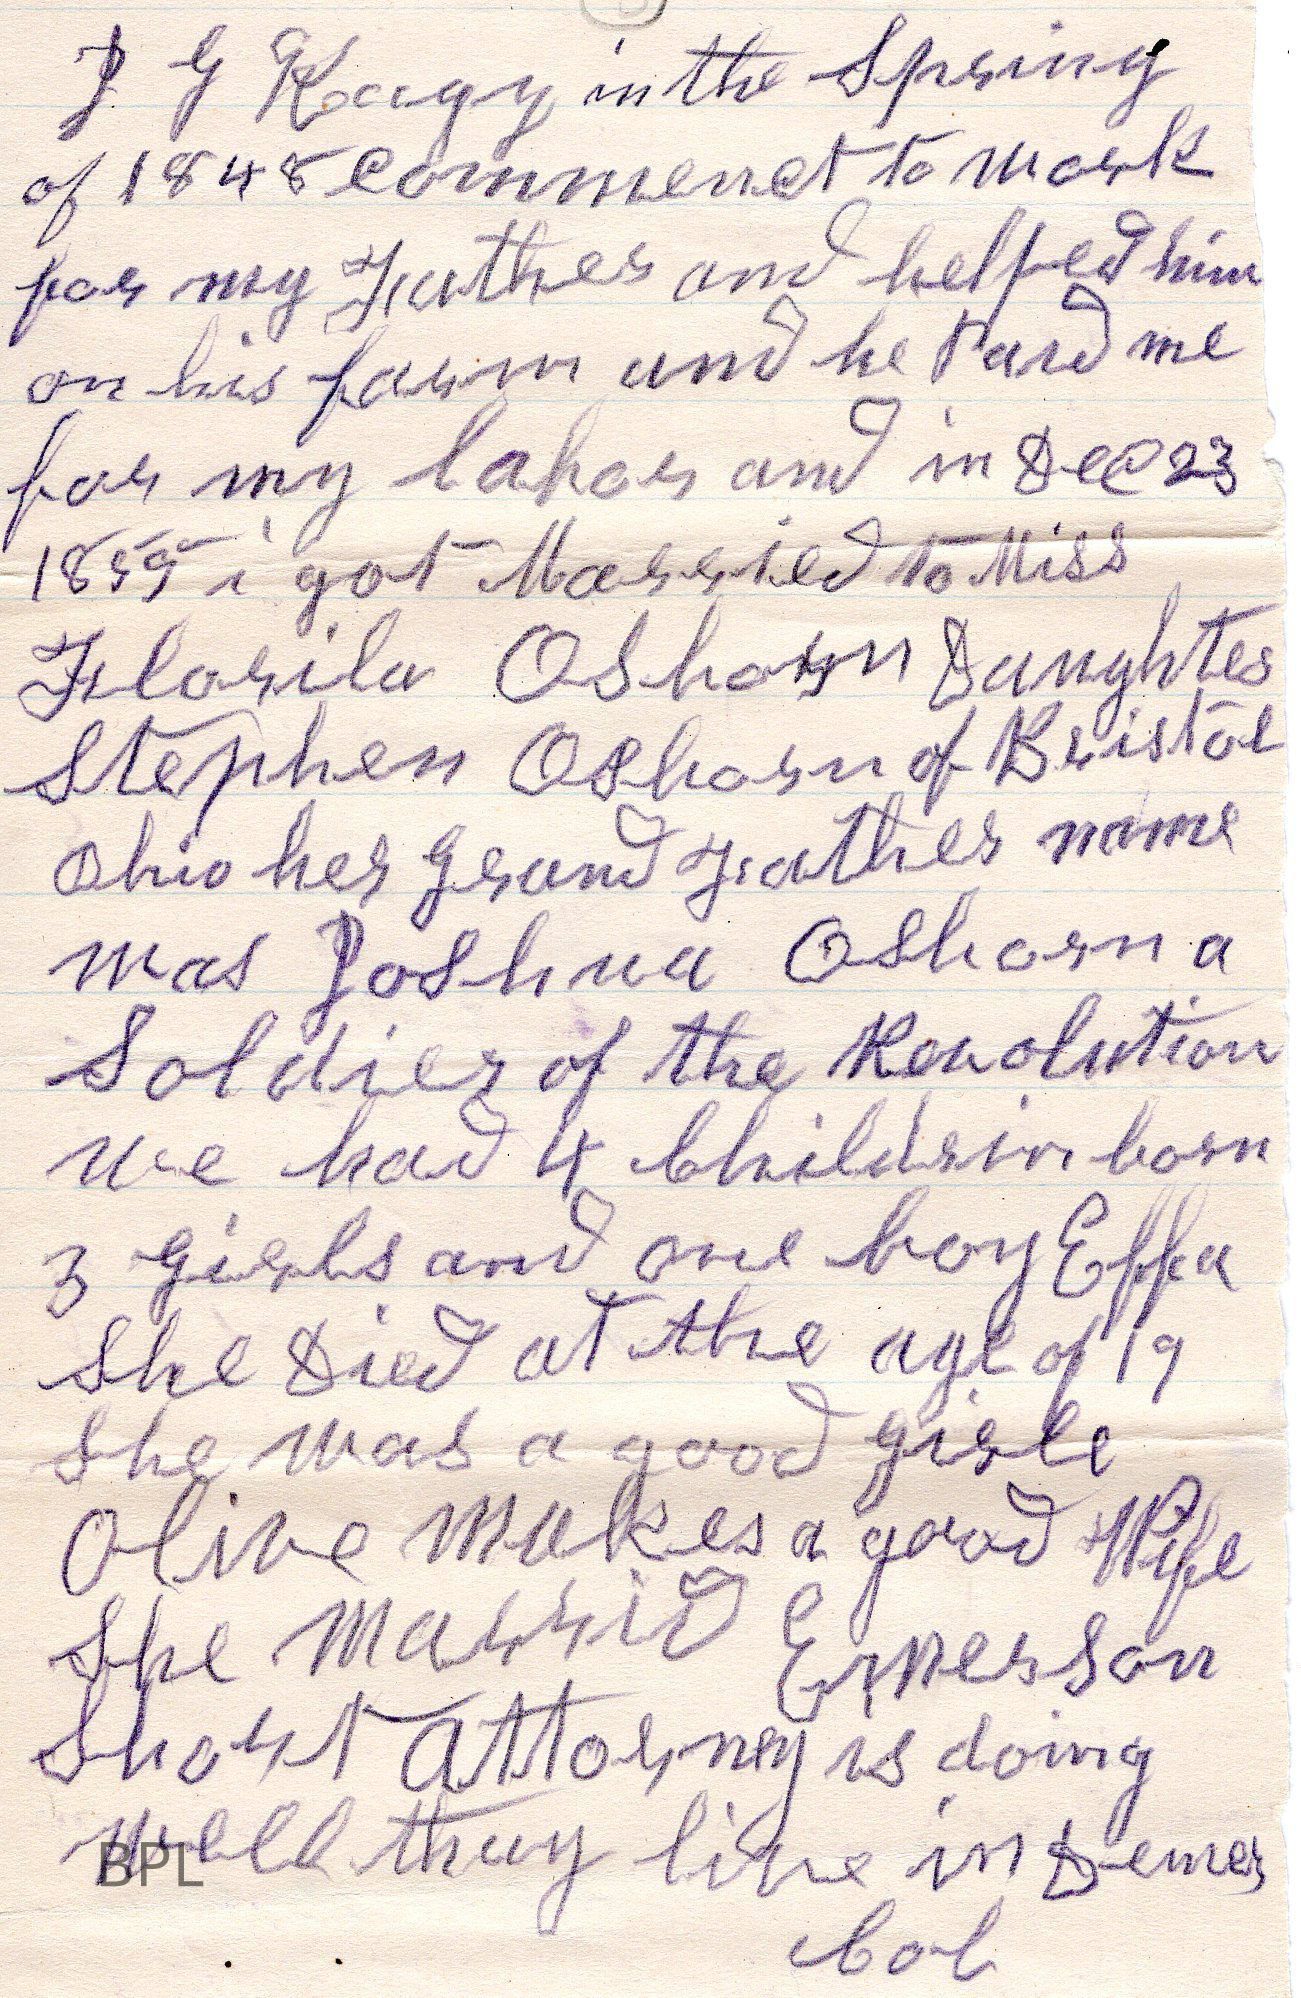 J G Keagy in the Spring
of 1848 Commenct to Work
for my Father and helped him
on his farm and he Paid me
for my labor and in Dec 23
1859 i got Married to Miss
Florila Osborn Daughter
Stephen Osborn of Bristol
Ohio her Grand Father name
Was Joshua Osborn a
Soldier of the Revolution
we had 4 Childrin born
3 Girls and one boy Effa
She Died at the age of 19
She Was a good girle
Olive Makes a good Wife
She Marrid Emerson
Short Attorney is doing
Well thay live in Denver
Col
BPL